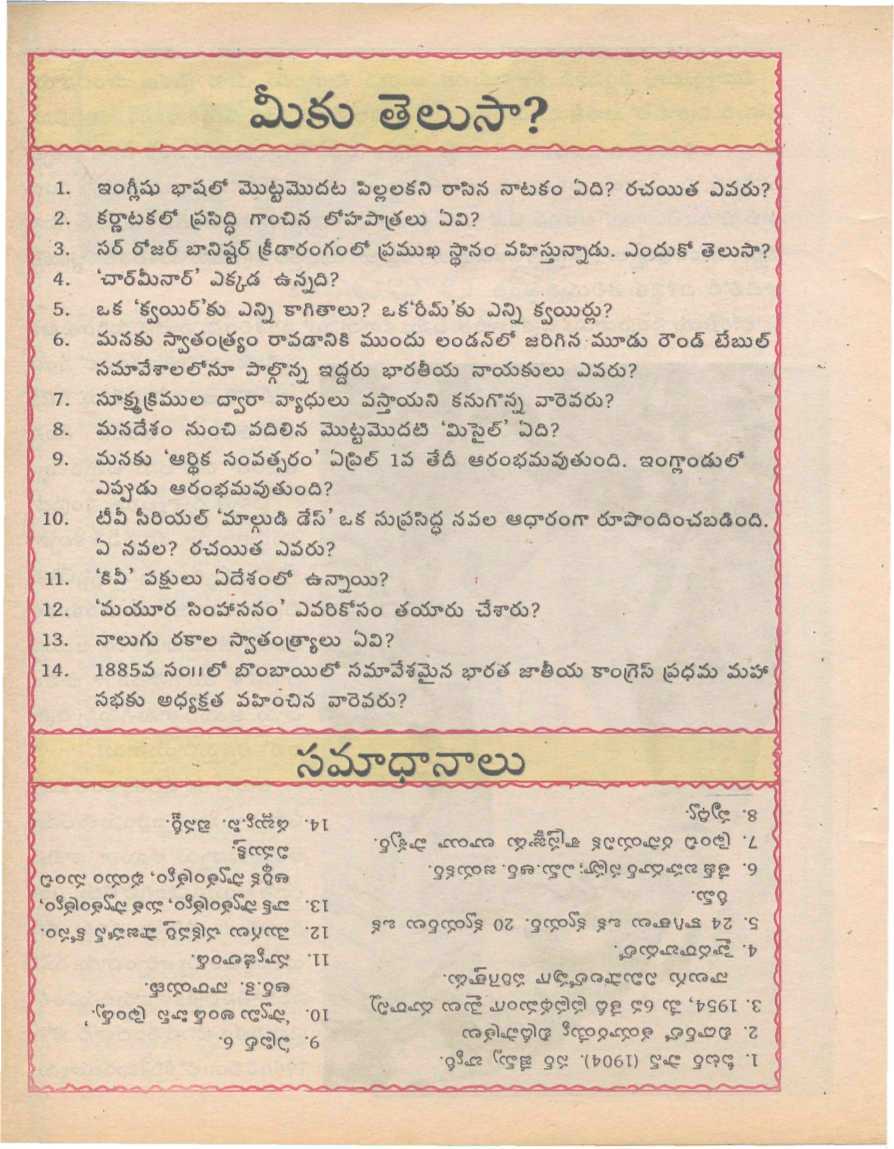 మీకు తెలుసా?
1. ఇంగ్లీషు భాషలో మొట్టమొదట పిల్లలకని రాసిన నాటకం ఏది? రచయిత ఎవరు?
2. కర్ణాటకలో ప్రసిద్ధి గాంచిన లోహపాత్రలు ఏవి?
3. సర్ రోజర్ బానిష్టర్ క్రీడారంగంలో ప్రముఖ స్థానం వహిస్తున్నాడు. ఎందుకో తెలుసా?
4. 'చార్‌మీనార్' ఎక్కడ ఉన్నది?
5. ఒక 'క్వయిర్'కు ఎన్ని కాగితాలు? ఒక'రీమ్'కు ఎన్ని క్వయిర్లు?
6. మనకు స్వాతంత్ర్యం రావడానికి ముందు లండన్‌లో జరిగిన మూడు రౌండ్ టేబుల్
సమావేశాలలోనూ పాల్గొన్న ఇద్దరు భారతీయ నాయకులు ఎవరు?
7. సూక్ష్మక్రిముల ద్వారా వ్యాధులు వస్తాయని కనుగొన్న వారెవరు?
8. మనదేశం నుంచి వదిలిన మొట్టమొదటి 'మిసైల్' ఏది?
9. మనకు 'ఆర్థిక సంవత్సరం' ఏప్రిల్ 1వ తేదీ ఆరంభమవుతుంది. ఇంగ్లాండులో
ఎప్పుడు ఆరంభమవుతుంది?
10. టీవీ సీరియల్ 'మాల్గుడి డేస్' ఒక సుప్రసిద్ధ నవల ఆధారంగా రూపొందించబడింది.
ఏ నవల? రచయిత ఎవరు?
11. 'కివీ' పక్షులు ఏదేశంలో ఉన్నాయి?
12. 'మయూర సింహాసనం' ఎవరికోసం తయారు చేశారు?
13. నాలుగు రకాల స్వాతంత్ర్యాలు ఏవి?
14. 1885వ సం॥లో బొంబాయిలో సమావేశమైన భారత జాతీయ కాంగ్రెస్ ప్రధమ మహా
సభకు అధ్యక్షత వహించిన వారెవరు?
సమాధానాలు
1. పీటర్ పాన్ (1904). సర్ జేమ్స్ బార్రీ.
2. బిదార్‌లో తయారయ్యే బిద్రీపాత్రలు
3. 1954, మే 6వ తేదీ ప్రప్రథమంగా మైలు దూరాన్ని
నాలుగు నిమిషాలలోపుగా పరిగెత్తాడు.
4. హైదరాబాదులో.
5. 24 కాగితాలు ఒక క్వయిర్. 20 క్వయిర్‌లు ఒక
రీము.
6. తేజ్ బహదూర్ సప్రూ, ఎమ్.ఆర్. జయకర్.
7. ఫ్రెంచి రసాయనిక శాస్త్రజ్ఞుడు లూయీ పాశ్చర్.
8. పృథ్వి.
9. ఏప్రిల్ 6.
10. 'స్వామి అండ్ హిస్ ఫ్రెండ్స్'
ఆర్.కె. నారాయణ్.
11. న్యూజిలాండ్.
12. మొగలు చక్రవర్తి షాజహాన్ కోసం.
13. వాక్ స్వాతంత్ర్యం, మత స్వాతంత్ర్యం,
ఆర్థిక స్వాతంత్ర్యం, భయం నుంచి
విముక్తి.
14. డబ్ల్యు.సి. బెనర్జీ.